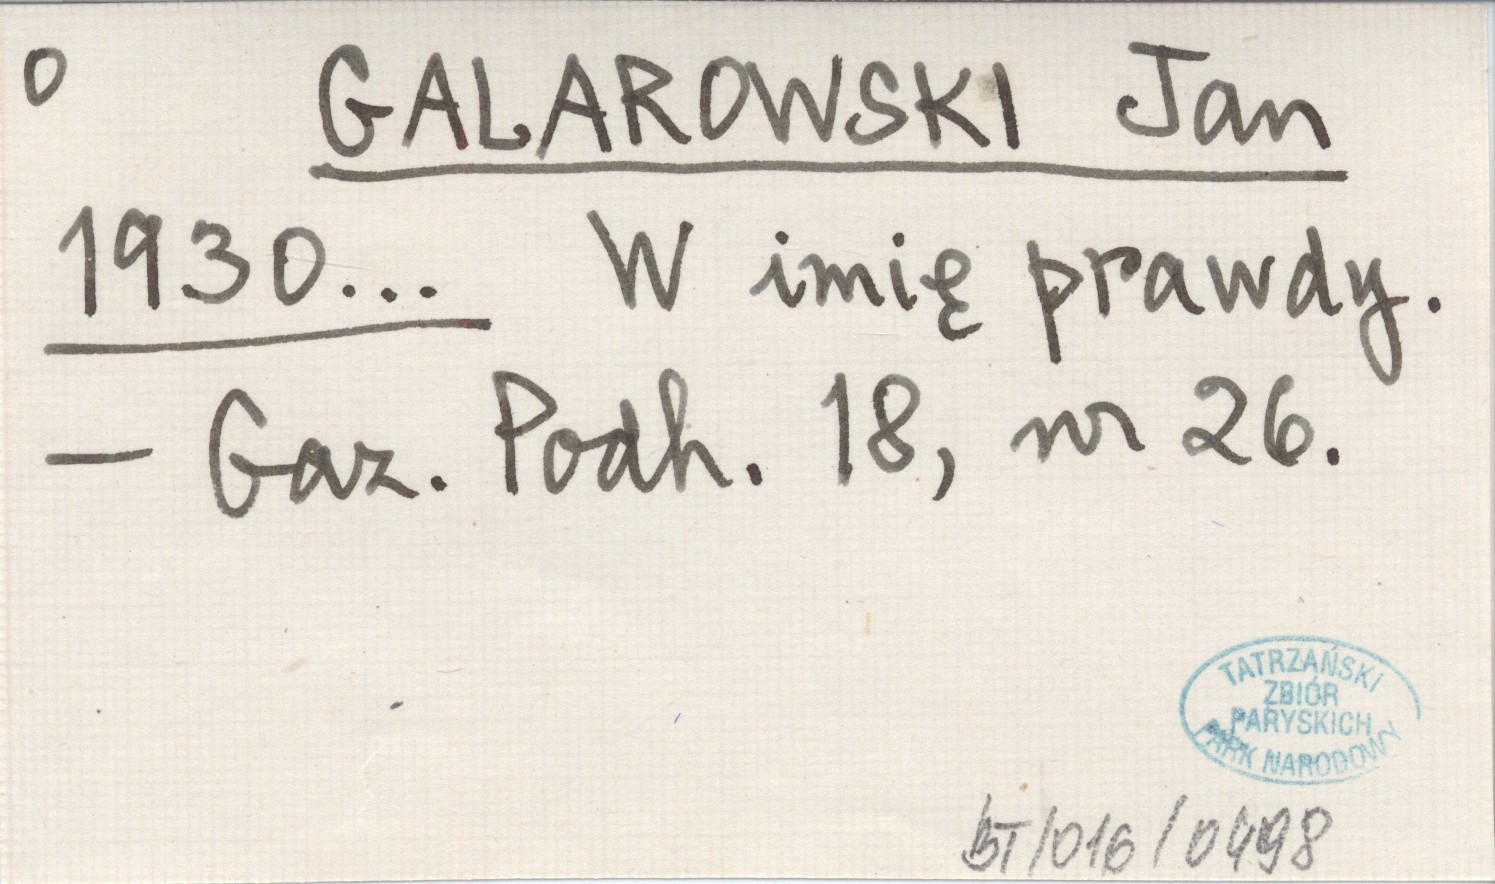 0 GALAROWSKI Jan
1930... W imię prawdy.
– Gaz. Podh. 18, nr 26.
TATRZAŃSKI
ZBIÓR
PARYSKICH
PARK NARODOWY
BT/016/0498